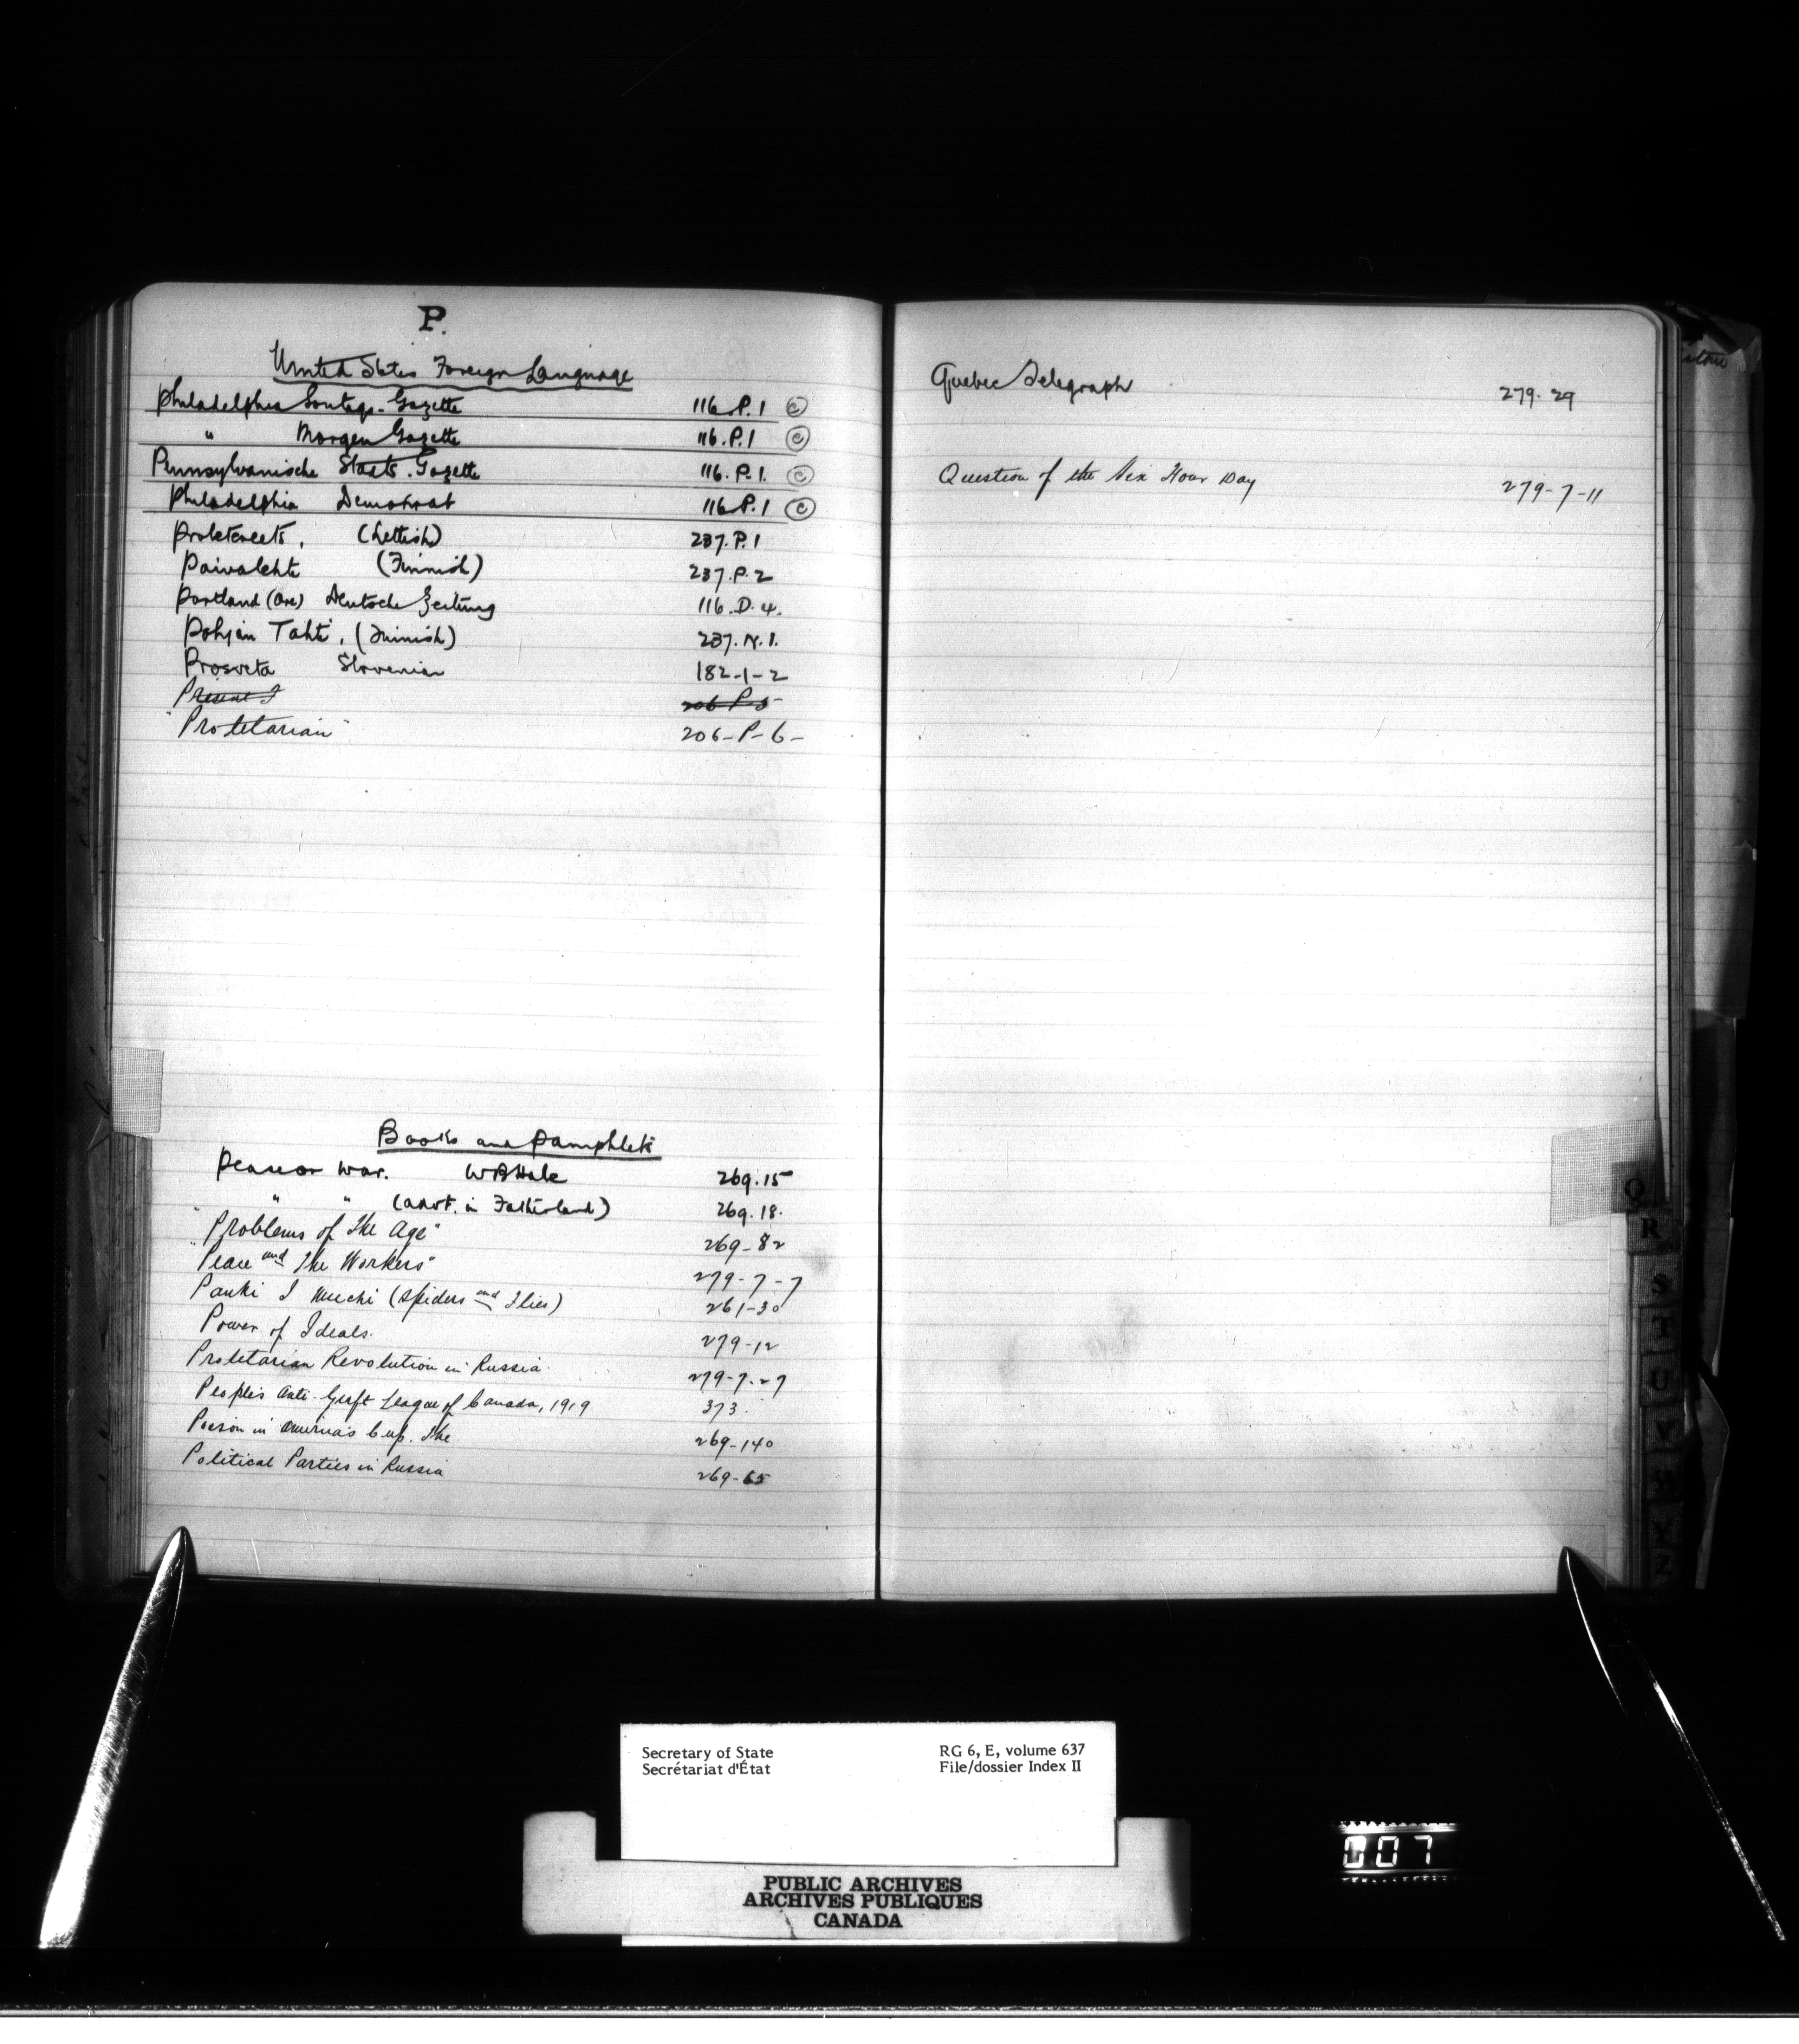 P.
United States Foreign Language
Philadelphia Sontags-Gazette 116.P.1 (c)
" Morgen Gazette 116.P.1 (c)
Pennsylvanische Staats-Gazette 116.P.1. (c)
Philadelphia Demokrat 116.P.1 (c)
Proletareets, (Lettish) 237.P.1
Paivalehti (Finnish) 237.P.2
Portland (Ore) Deutsche Zeitung 116.D.4.
Pohjan Tahti, (Finnish) 237.N.1.
Prosveta Slovenian 182-1-2
Present I 206-P-5-
"Proletarian" 206-P-6-
Books and Pamphlets
Peace or War. WB Hale 269.15
" " (advt. in Fatherland) 269.18.
"Problems of the Age" 269-82
"Peace and The Workers" 279-7-7
Pauki I Muchi (Spiders and Flies) 261-30
Power of Ideals. 279-12
Proletarian Revolution in Russia. 279-7-27
People's Anti-Graft League of Canada, 1919 373.
Poison in America's Cup. The 269-140
Political Parties in Russia 269-65
Quebec Telegraph 279.29
Question of the Six Hour Day 279-7-11
Q
R
S
T
U
V
W
Y
Z
Secretary of State
Secrétariat d'État
RG 6, E, volume 637
File/dossier Index II
PUBLIC ARCHIVES
ARCHIVES PUBLIQUES
CANADA
007